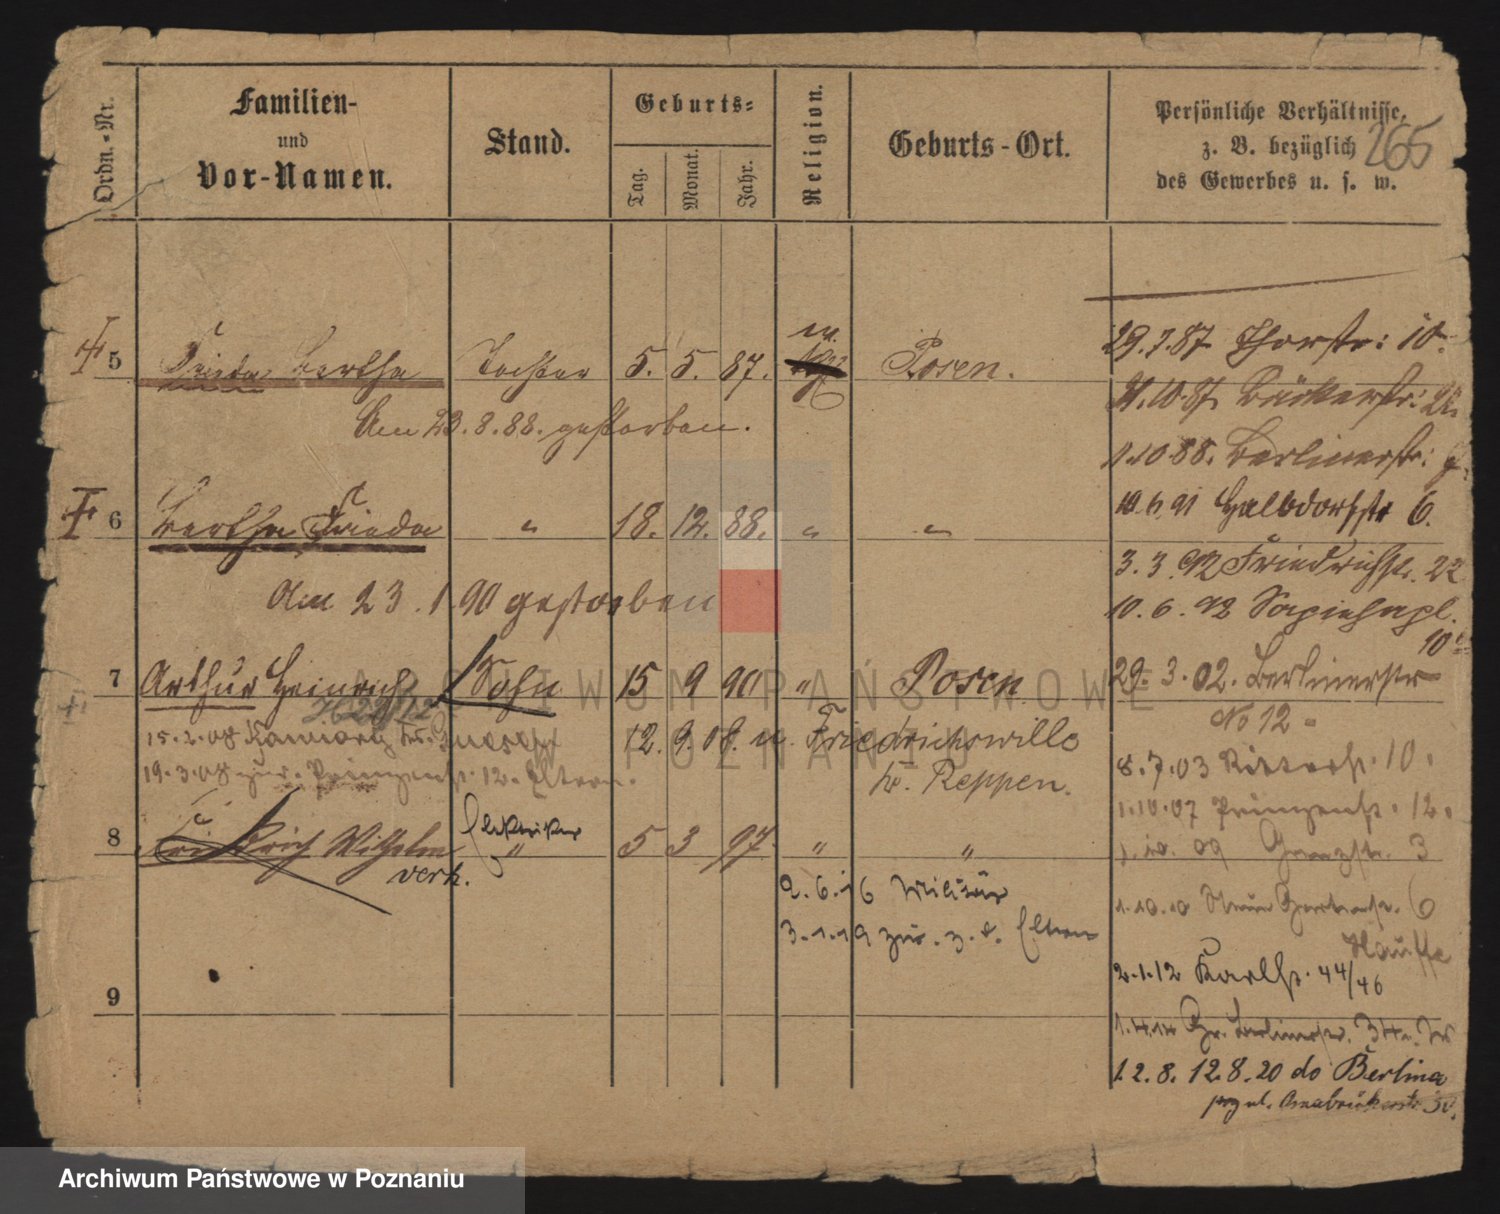 Ordn.-Nr.
Familien-
und
Vor-Namen.
Stand.
Geburts-
Tag.
Monat.
Jahr.
Religion.
Geburts-Ort.
Persönliche Verhältnisse,
z. B. bezüglich
des Gewerbes u. s. w.
265
5 Frieda Bertha Tochter 5. 5. 87. Posen.
Am 23.8.88. gestorben.
6 Bertha Frieda " 18. 12. 88. " "
Am 23.1.90 gestorben
7 Arthur Heinrich Sohn 15 9 90 " Posen
15.2.08
12. 9. 08. n. Friedrichswille
19.3.08 zur. Prinzenstr. 12. Eltern.
b. Reppen.
8 Friedrich Wilhelm Elektriker " 5 3 97. " "
verh.
2.6.16 Militär
3.1.19 zur. z. d. Eltern
9
29.7.87 Thorstr: 10.
Bäckerstr: 22.
1.10.88. Berlinerstr:
10.6.91 Halbdorfstr 6.
3.3.92 Friedrichstr. 22
10.6.92 Sapiehapl.
10
29.3.02. Berlinerstr
No 12
8.7.03 Ritterstr. 10.
1.10.07 Prinzenstr. 12.
1.10.09 3
1.10.10 6
Hauffe
2.1.12 Karlstr. 44/46
1.4.14 Gr. Berlinerstr.
12.8. 12.8.20 do Berlina
Osnabrückerstr 30.
ARCHIWUM PAŃSTWOWE
POZNANIU
Archiwum Państwowe w Poznaniu